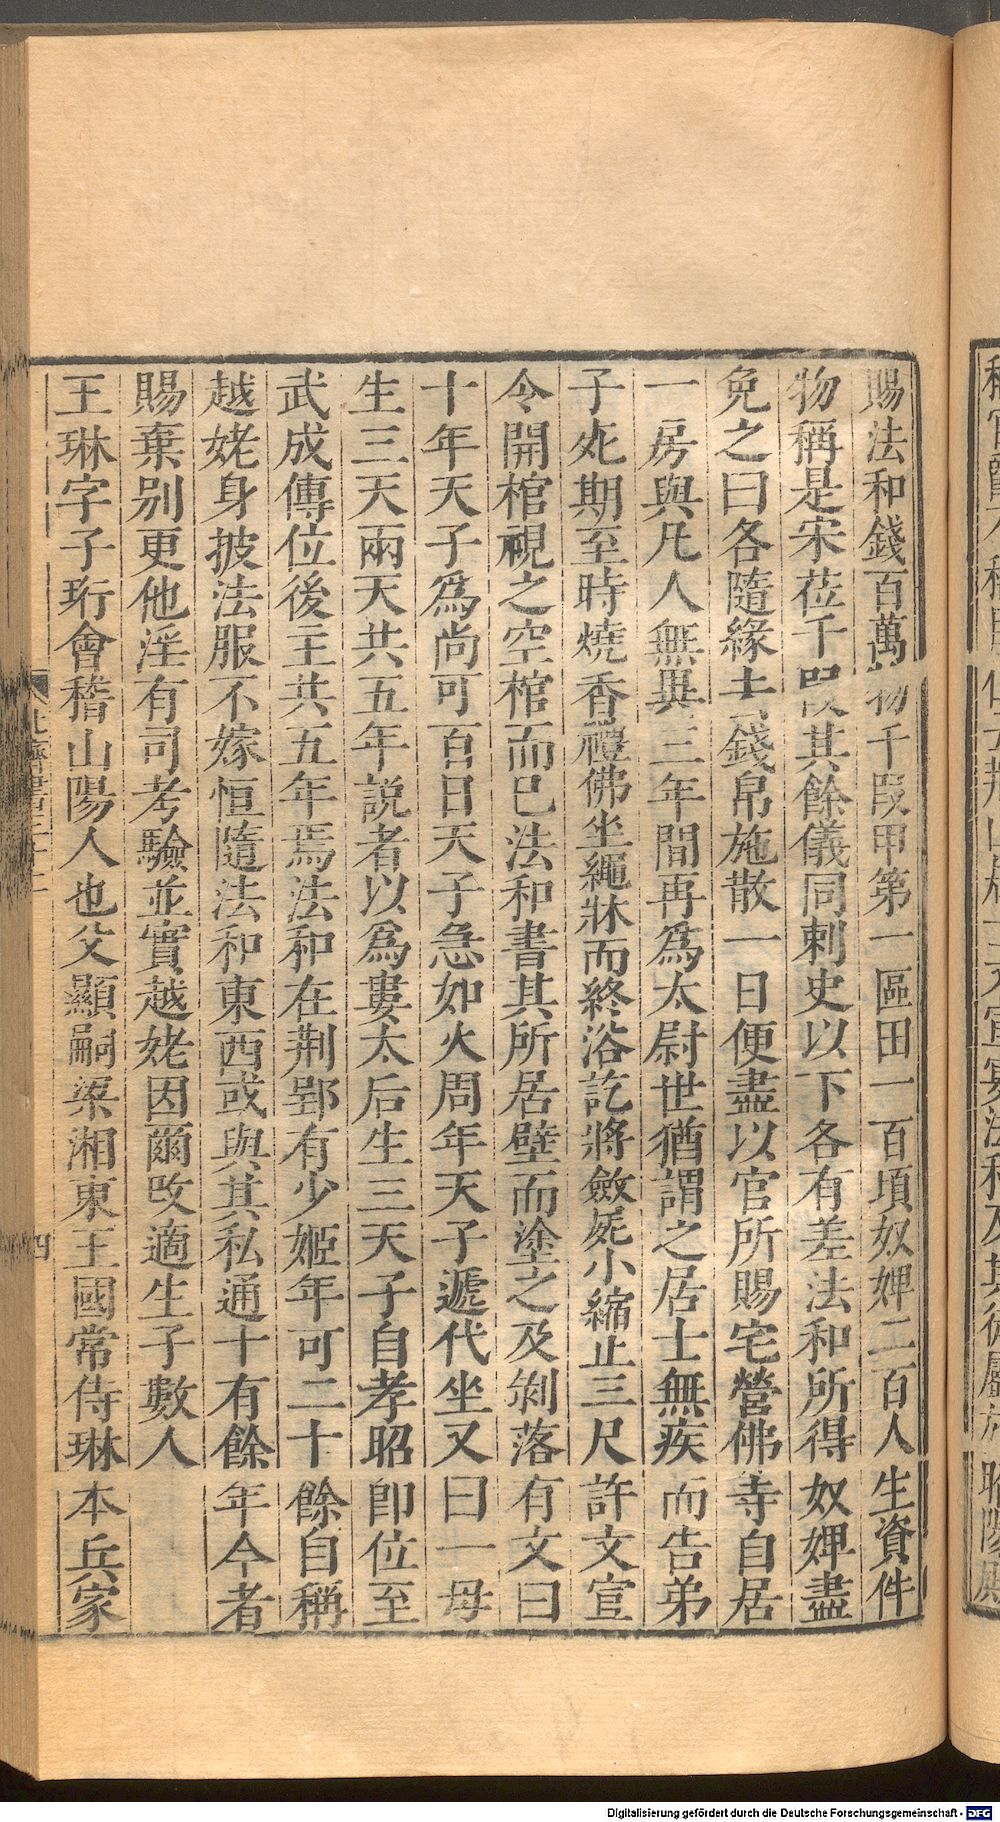 賜法和錢百萬物千叚甲第一區田一百頃奴婢二百人生資什
物稱是宋莅千叚其餘儀同刺史以下各有差法和所得奴婢盡
免之曰各隨緣去錢帛施散一日便盡以官所賜宅營佛寺自居
一房與凡人無異三年間再為太尉世猶謂之居士無疾而告弟
子死期至時燒香禮佛坐繩牀而終浴訖將斂屍小縮止三尺許文宣
令開棺視之空棺而已法和書其所居壁而塗之及剝落有文曰
十年天子為尚可百日天子急如火周年天子遞代坐又曰一母
生三天兩天共五年說者以為婁太后生三天子自孝昭即位至
武成傳位後主共五年焉法和在荆郢有少姬年可二十餘自稱
越姥身披法服不嫁恒隨法和東西或與其私通十有餘年今者
賜棄别更他淫有司考驗並實越姥因爾改適生子數人
王琳字子珩會稽山陽人也父顯嗣梁湘東王國常侍琳本兵家
北齊書三十二
四
Digitalisierung gefördert durch die Deutsche Forschungsgemeinschaft - DFG